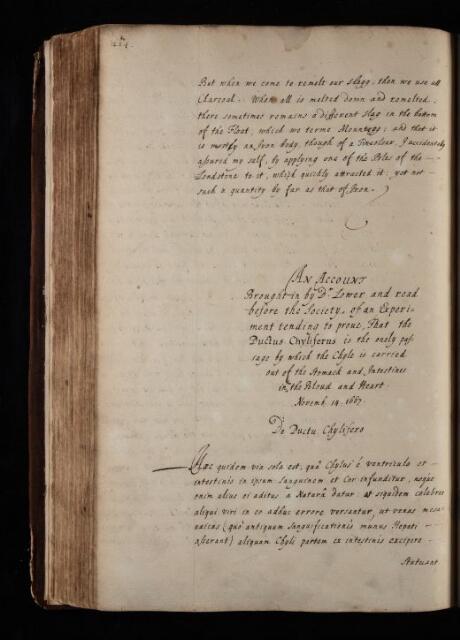 But when we come to remelt our slagg, then we use all
Charcoal. When all is melted down and remelted,
there sometimes remains a different slag in the bottom
of the Float, which we terme Mount Egg; and that it
is mostly an Iron body, though of a Tincolour, I accidentally
assured my self, by applying one of the Poles of the
Loadstone to it, which quickly attracted it; yet not
such a quantity by far as that of Iron.
An Account
Brought in by Dr. Lower, and read
before the Society, of an Experi-
ment tending to prove, That the
Ductus Chyliferus is the onely pas-
sage by which the Chyle is carried
out of the Stomack and Intestines
in the Bloud and Heart.
Novemb. 14. 1667.
De Ductu Chylifero
Hæc quidem via sola est, quâ Chylus è ventriculo et
intestinis in ipsum Sanguinem et Cor infunditur, neque
enim alius ei aditus a Naturâ datur. at siquidem celebres
aliqui viri in eo adhuc errore versantur, ut venas mesa-
raicas (quæ antiquam Sanguificationis munus Hepati
asserant) aliquam Chyli partem ex intestinis excipere